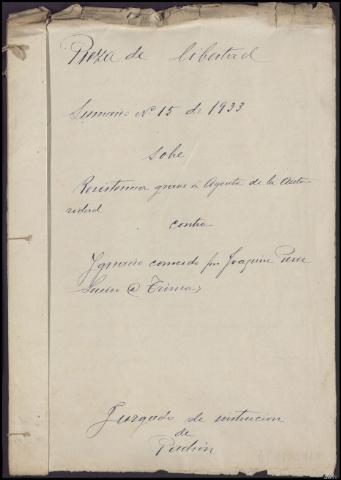 Pieza de libertad
Sumario Nº 15 de 1933
sobe
Resistencia grave a Agente de la Auto-
ridad
contra
Ignacio conocido por Joaquin Perez
@
Juzgado de instrucion
de
Padrón